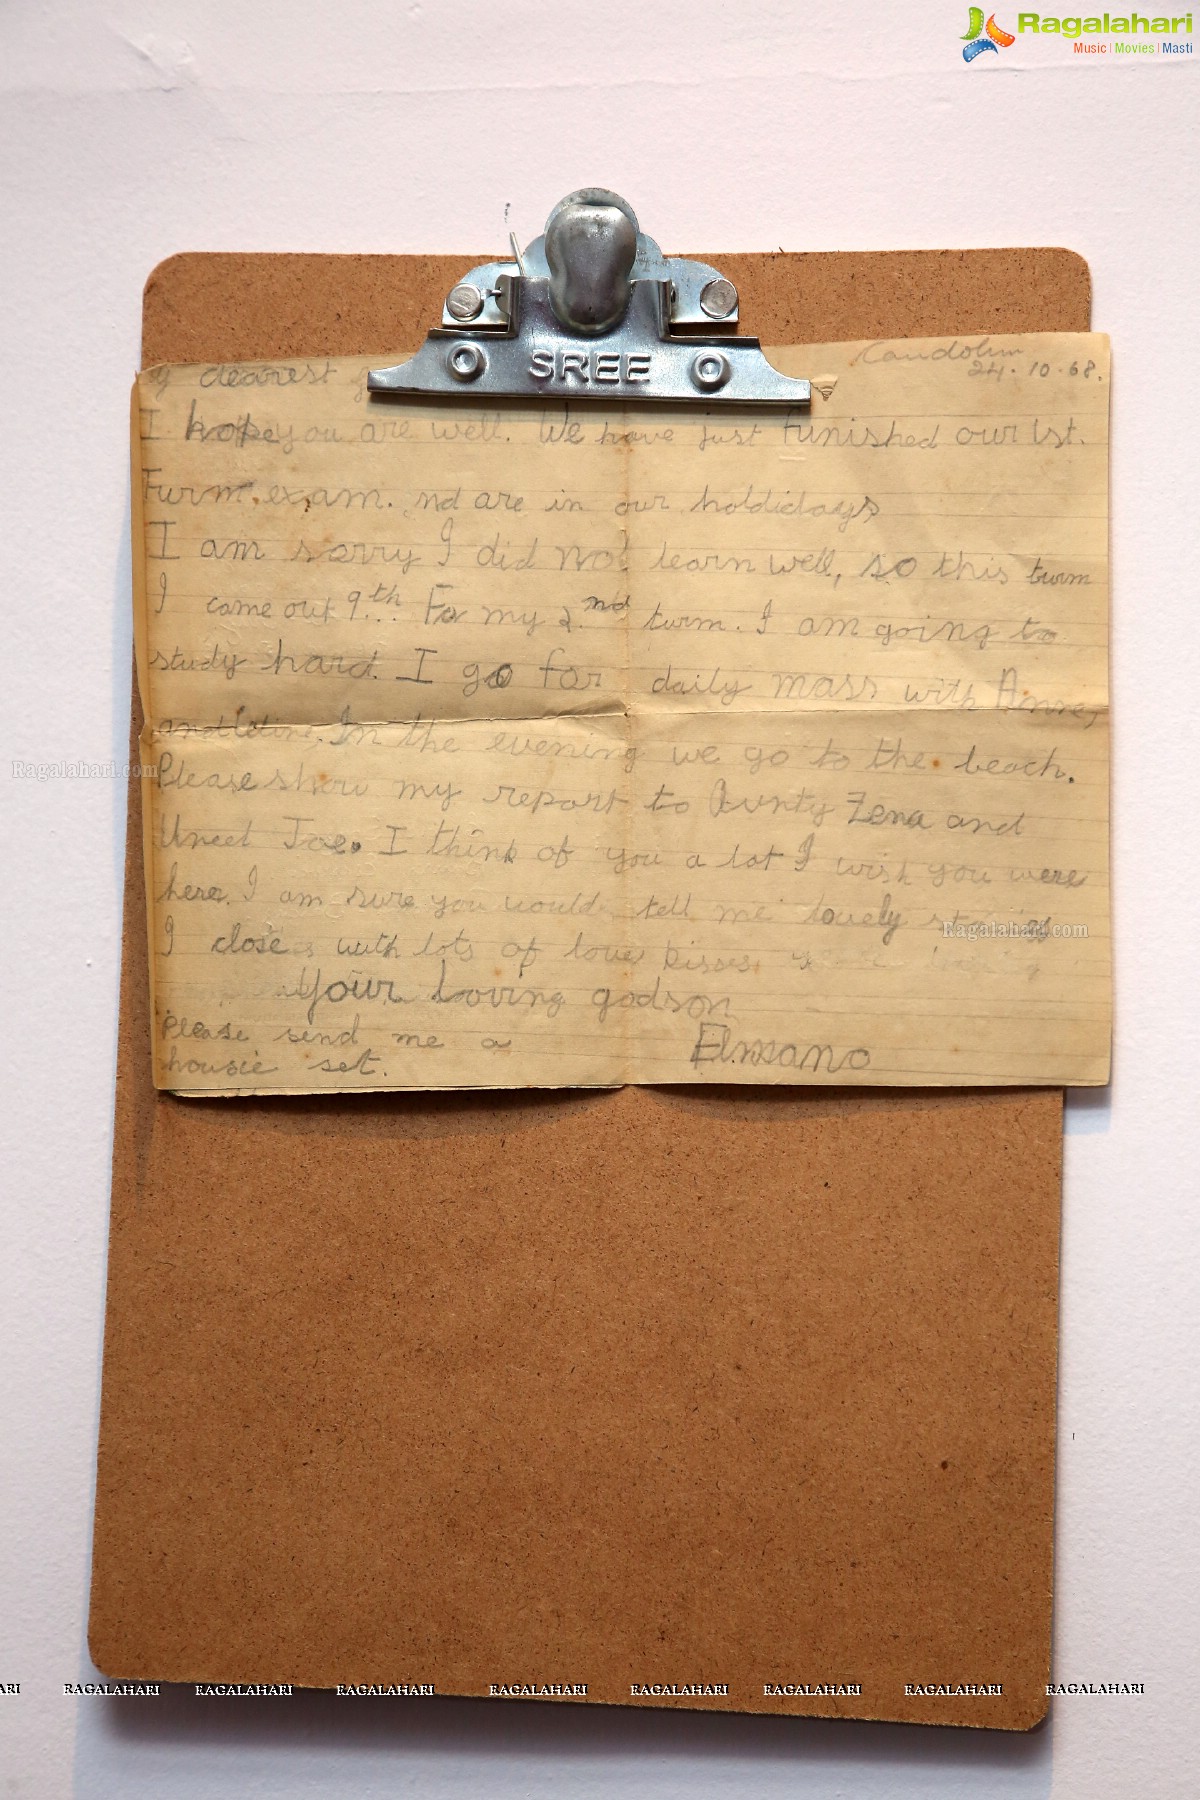 Ragalahari
Music | Movies | Masti
SREE
Candolim
24.10.68.
y dearest
I hope you are well. We have just funished our 1st.
Furm. exam. nd are in our holdidays
I am sorry I did not learn well, so this turm
I came out 9th. For my 2nd turm. I am going to
study hard. I go for daily mass with Anne,
and In the evening we go to the beach.
Please show my report to Aunty Zena and
Uncel Joe. I think of you a lot I wish you were
here. I am sure you would tell me lovely stories
I close with lots of love kisses
Your loving godson
Elmano
Please send me a
housie set.
Ragalahari.com
Ragalahari.com
RAGALAHARI RAGALAHARI RAGALAHARI RAGALAHARI RAGALAHARI RAGALAHARI RAGALAHARI RAGALAHARI